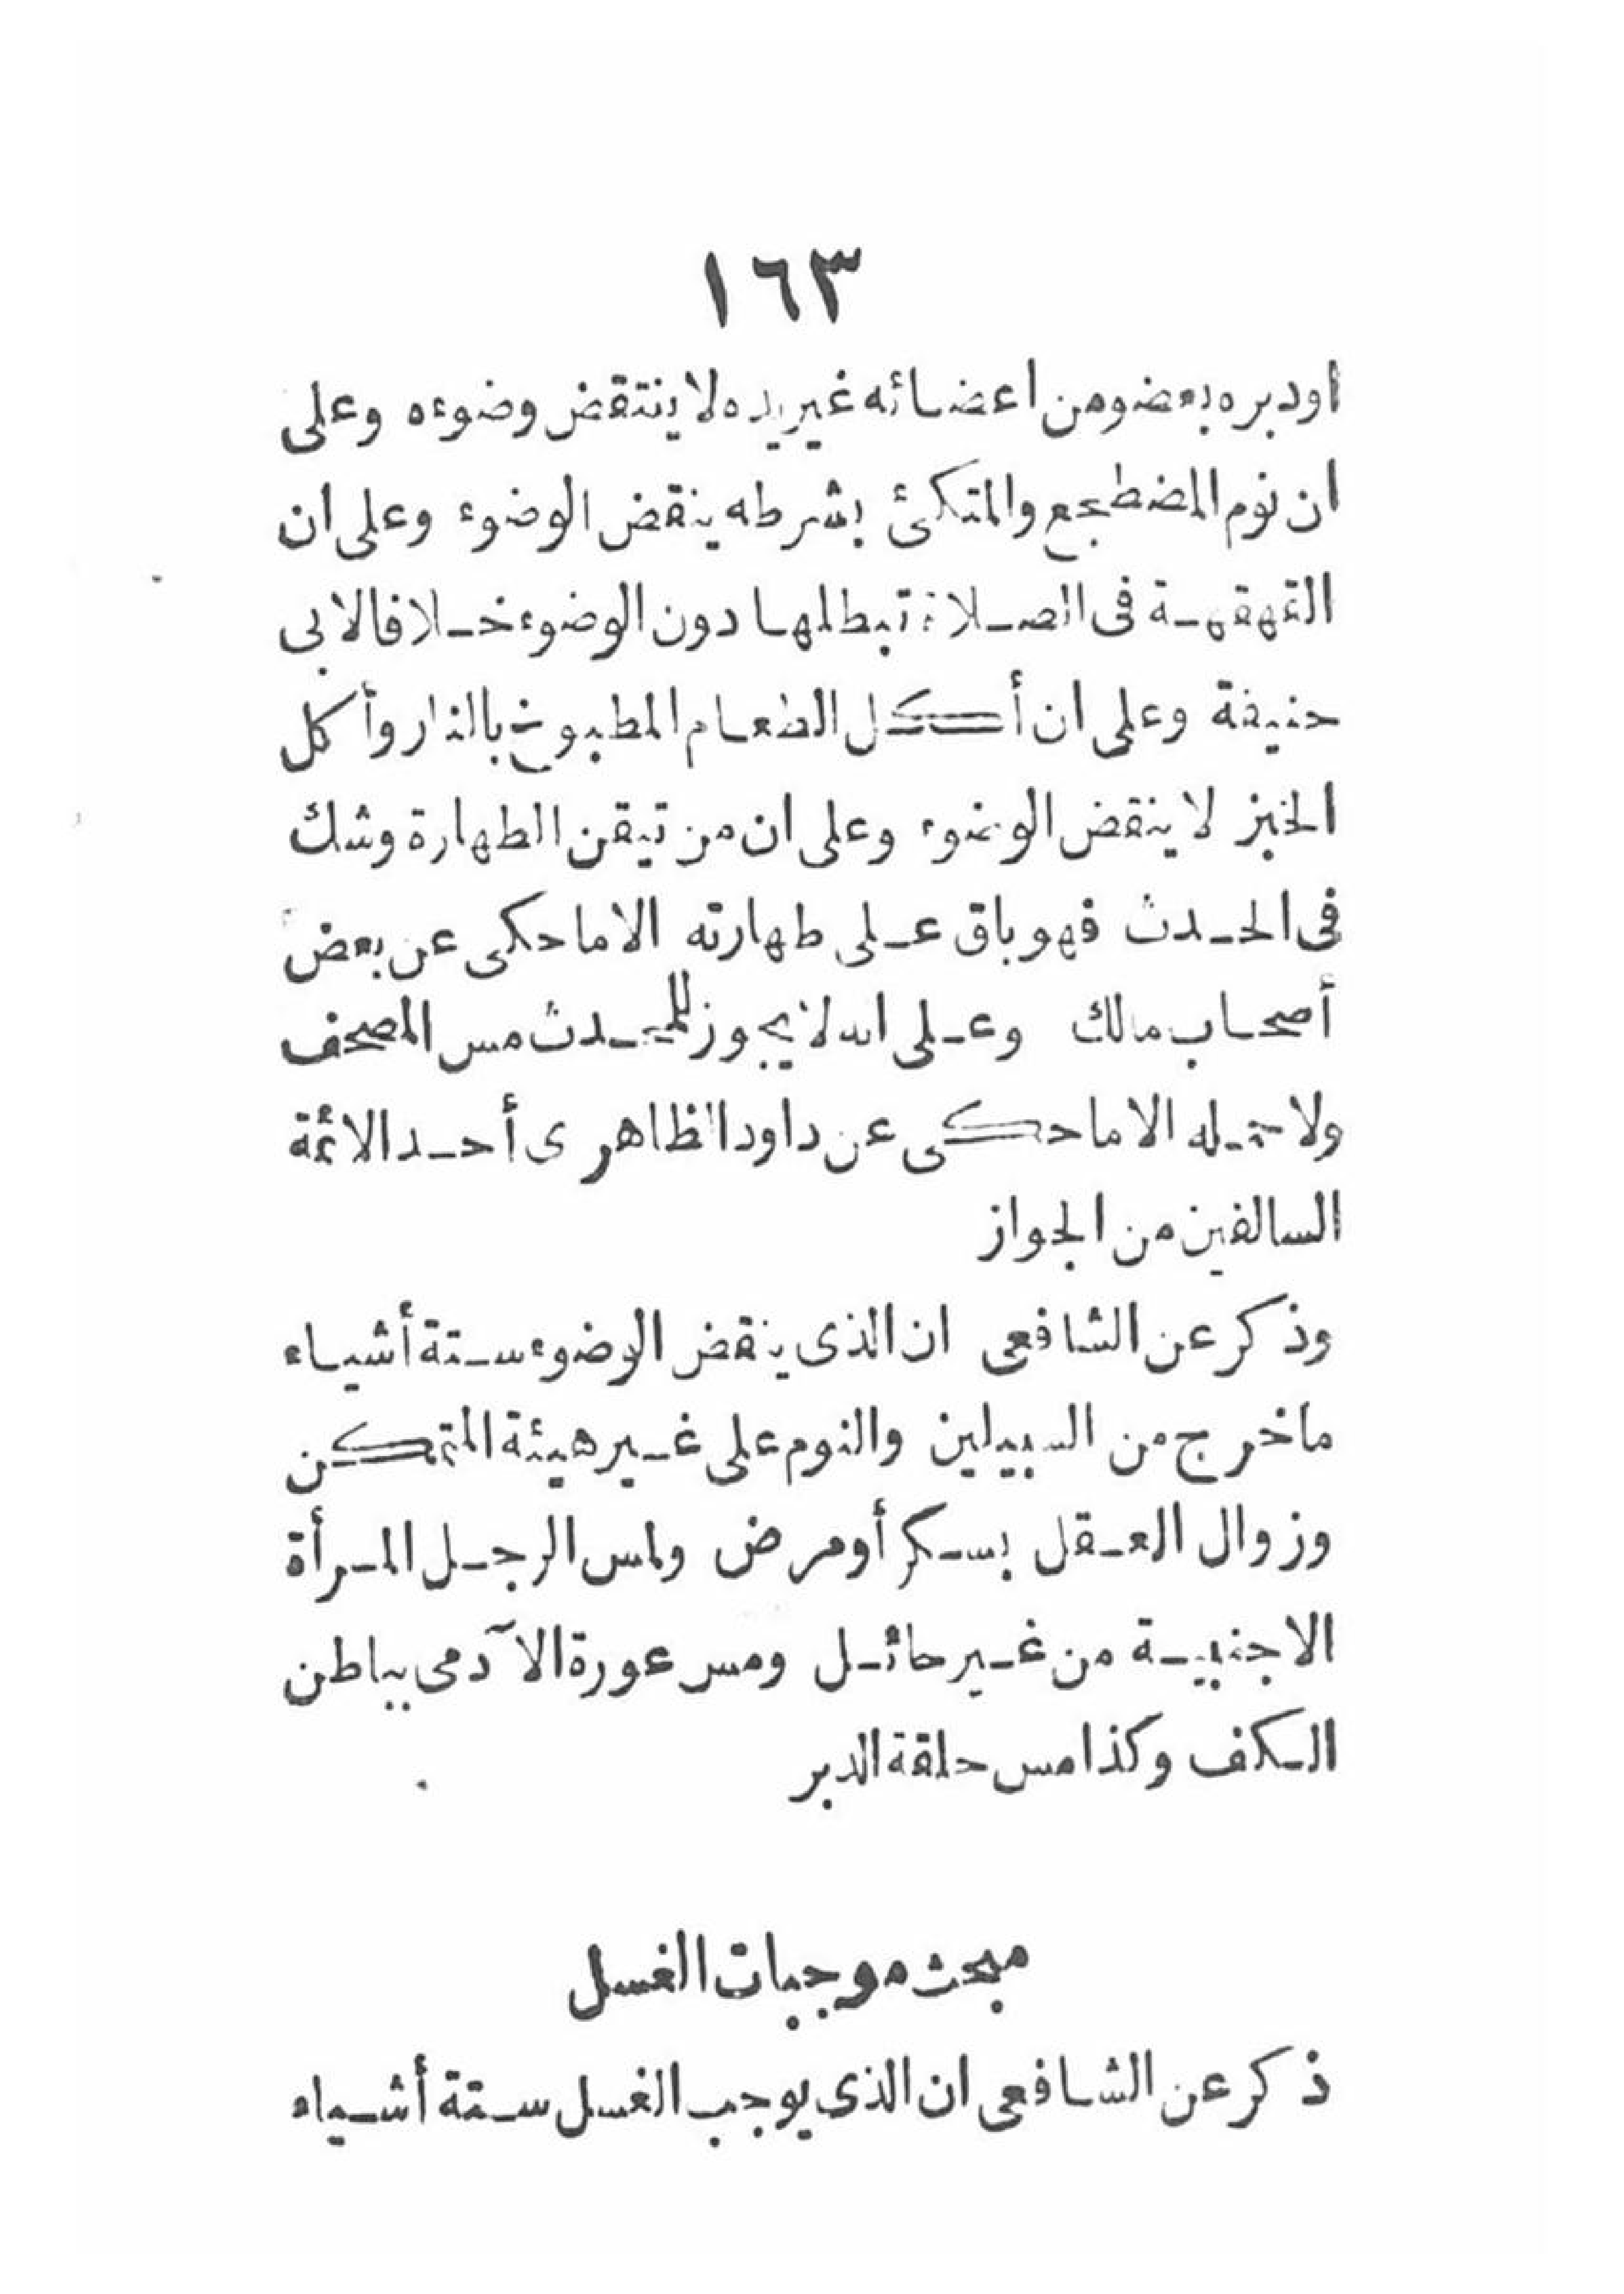 ١٦٣
اودبره بعضو من اعضائه غير يده لا ينتقض وضوءه وعلى
ان نوم المضطجع والمتكئ بشرطه ينقض الوضوء وعلى ان
القهقهة فى الصلاة تبطلها دون الوضوء خلافا لابى
حنيفة وعلى ان أكل الطعام المطبوخ بالنار وأكل
الخبز لا ينقض الوضوء وعلى ان من تيقن الطهارة وشك
فى الحدث فهو باق على طهارته الا ما حكى عن بعض
أصحاب مالك وعلى انه لا يجوز للمحدث مس المصحف
ولا حمله الا ما حكى عن داود الظاهرى أحد الائمة
السالفين من الجواز
وذكر عن الشافعى ان الذى ينقض الوضوء ستة أشياء
ما خرج من السبيلين والنوم على غير هيئة المتمكن
وزوال العقل بسكر أو مرض ولمس الرجل المرأة
الاجنبية من غير حائل ومس عورة الآدمى بباطن
الكف وكذا مس حلقة الدبر
مبحث موجبات الغسل
ذكر عن الشافعى ان الذى يوجب الغسل ستة أشياء